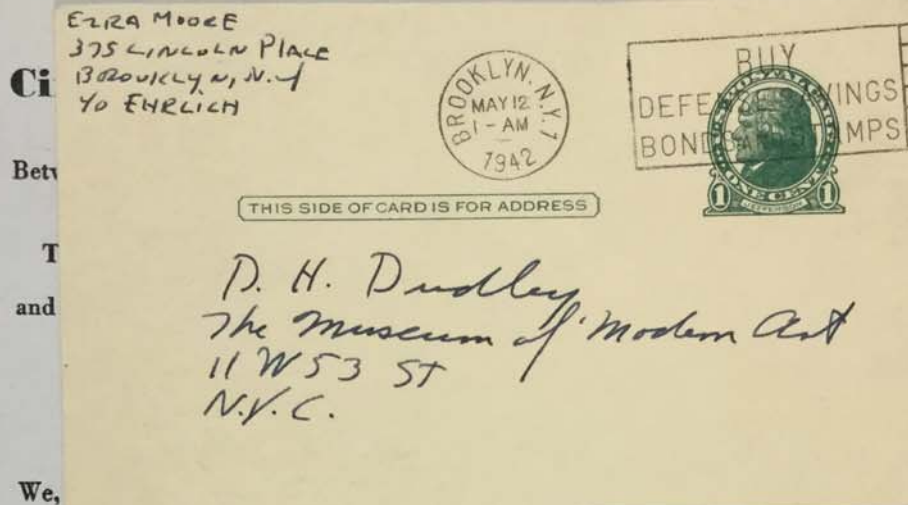 EZRA MOORE
375 LINCOLN PLACE
BROOKLYN, N.Y
℅ EHRLICH
BROOKLYN, N.Y. 1
MAY 12
1 - AM
1942
BUY
DEFENSE SAVINGS
BONDS AND STAMPS
1 ONE CENT 1
JEFFERSON
THIS SIDE OF CARD IS FOR ADDRESS
D. H. Dudley
The Museum of Modern Art
11 W 53 ST
N.Y.C.
Ci
Betw
T
and
We,